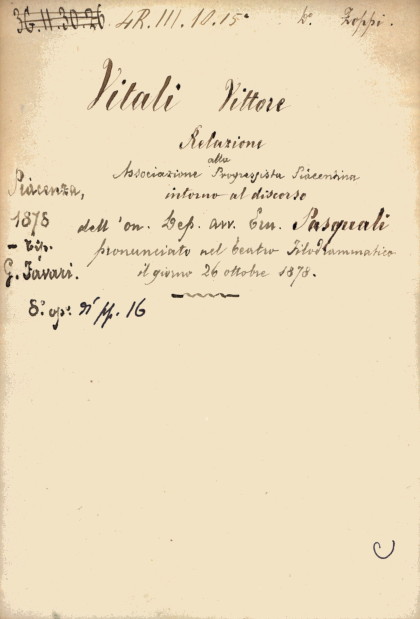 3G.II.30.26 4R.III.10.15° D. Zoppi.
Vitali Vittore
Relazione
alla
Associazione Progressista Piacentina
intorno al discorso
dell'on. Dep. avv. Em. Pasquali
pronunciato nel teatro Filodrammatico
il giorno 26 ottobre 1878.
Piacenza,
1878
– Tip.
G. Favari.
8° op. pp. 16